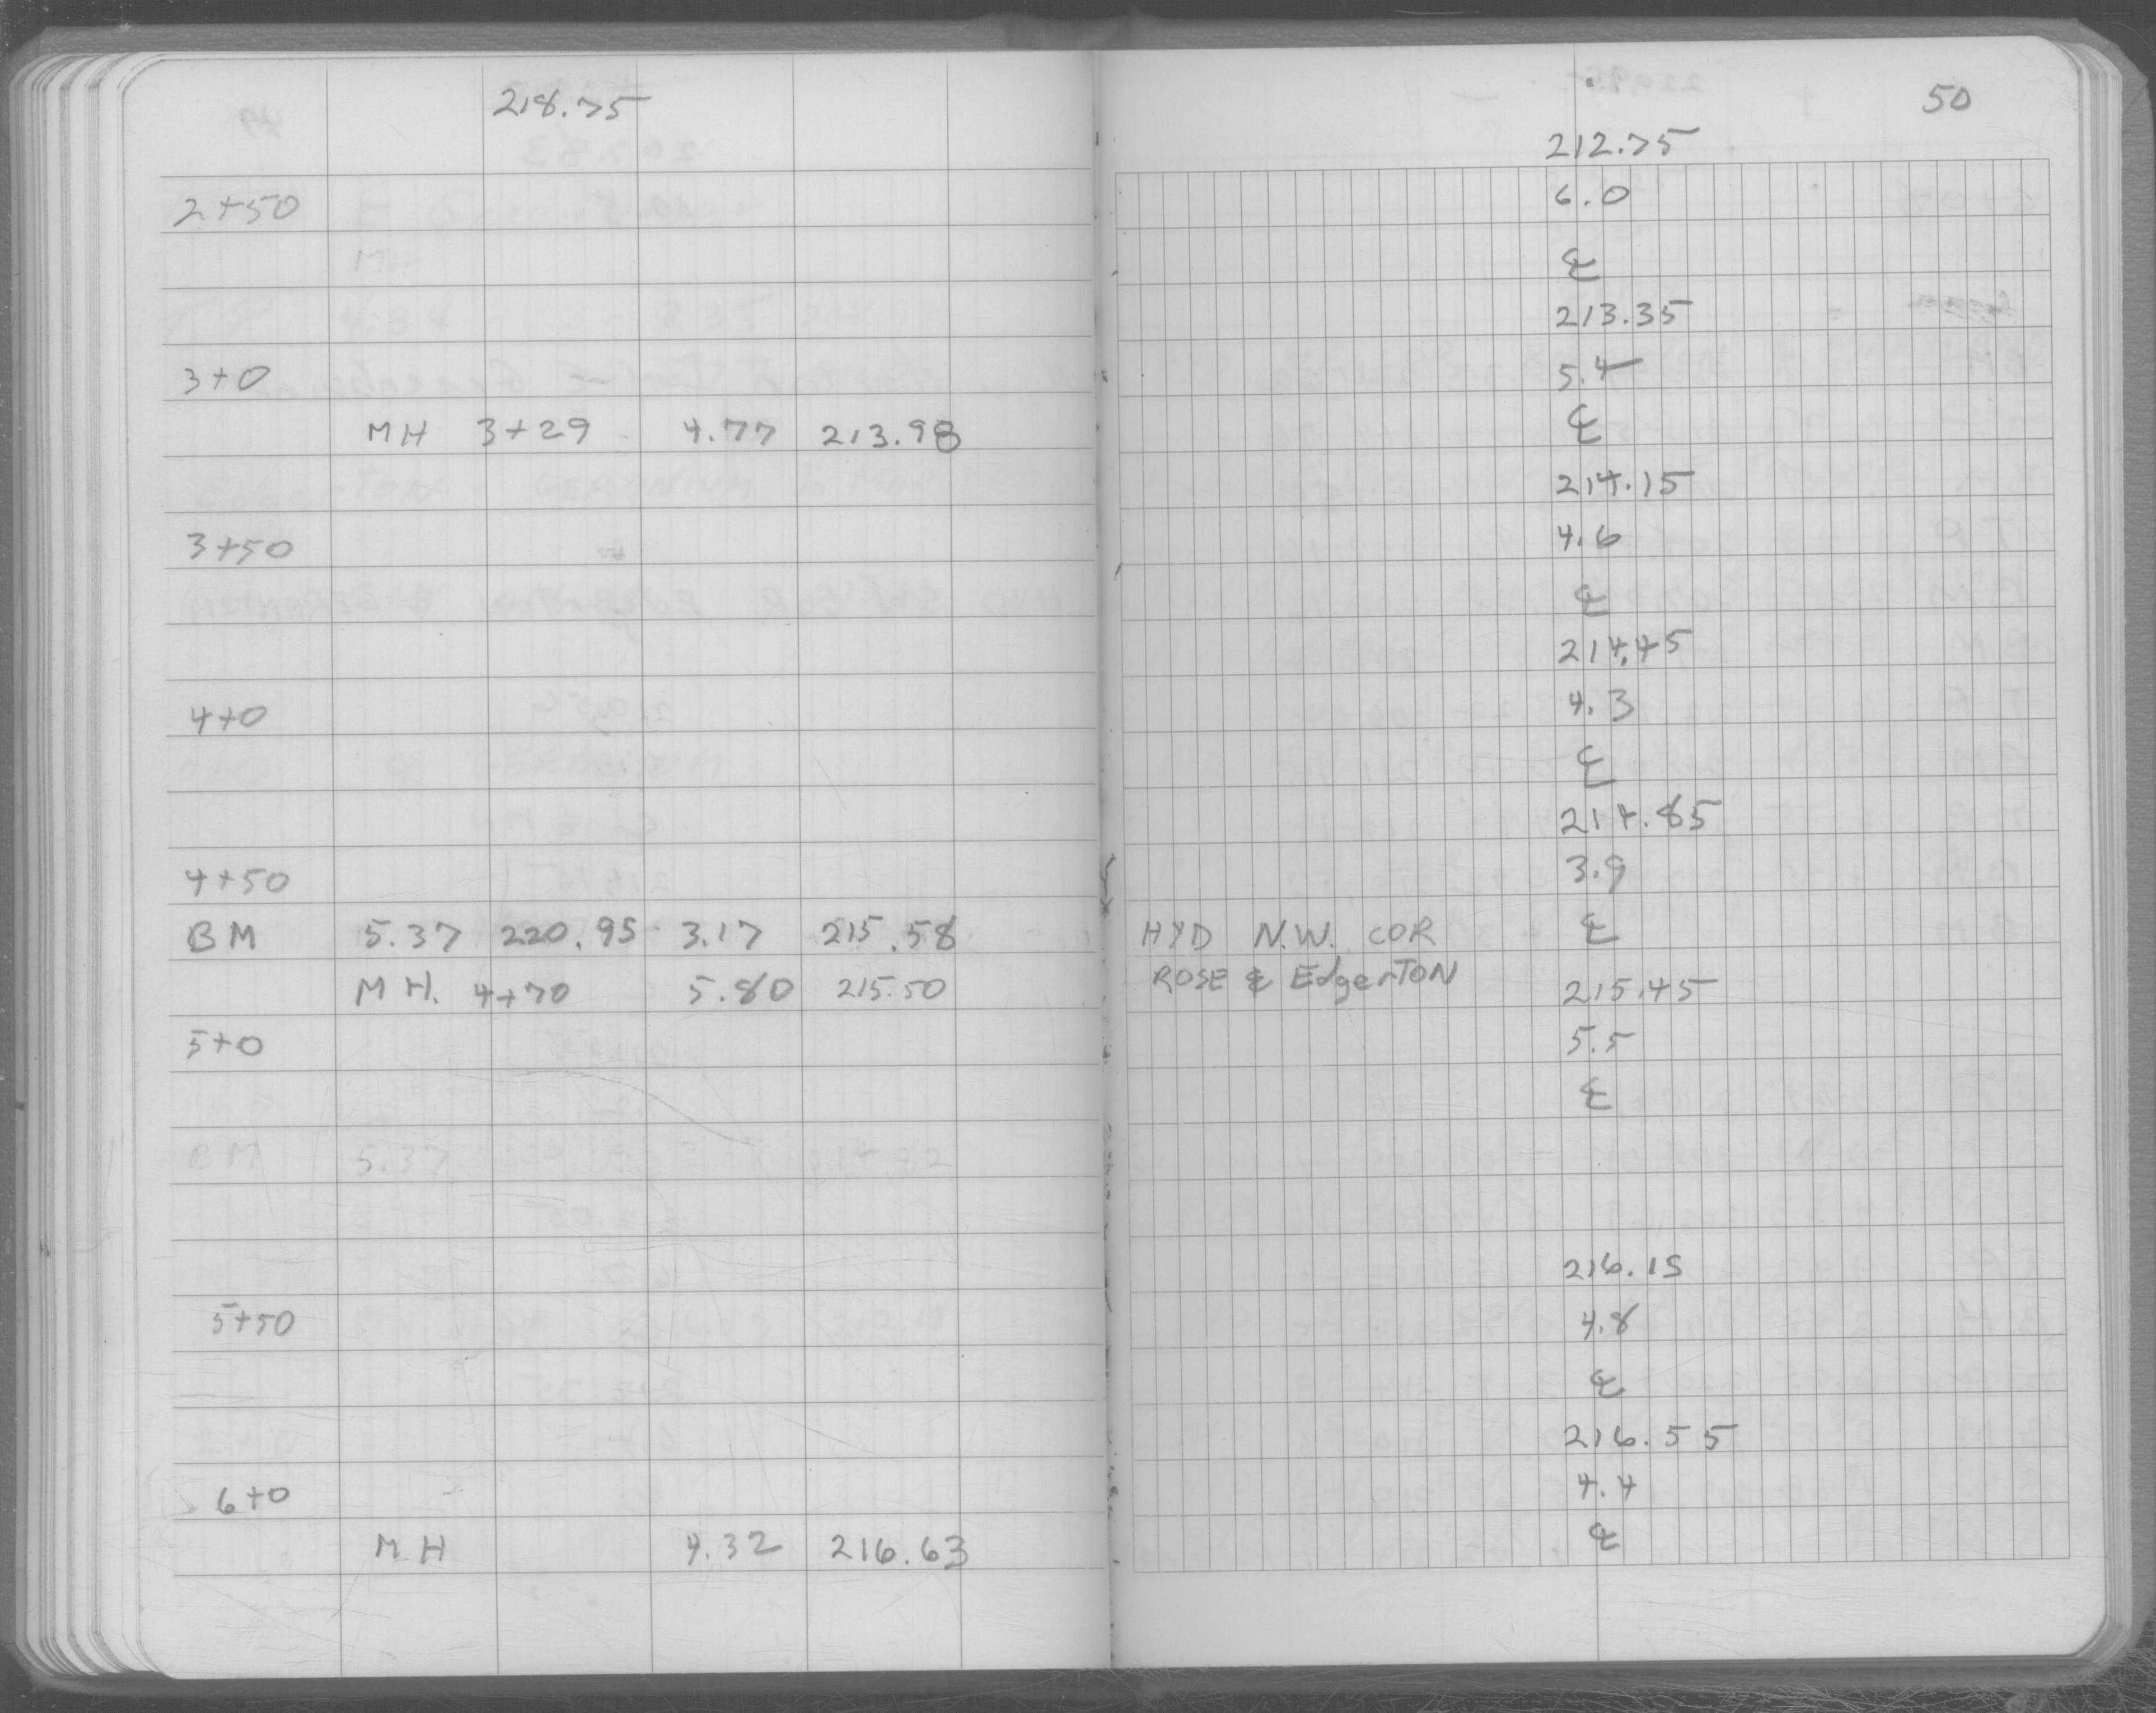 218.75
2+50
3+0
MH 3+29 4.77 213.98
3+50
4+0
4+50
BM 5.37 220.95 3.17 215.58
MH. 4+70 5.80 215.50
5+0
BM 5.37
5+50
6+0
MH 4.32 216.63
50
212.75
6.0
℄
213.35
5.4
℄
214.15
4.6
℄
214.45
4.3
℄
214.85
3.9
HYD N.W. COR ℄
ROSE & EdgerTON 215.45
5.5
℄
216.15
4.8
℄
216.55
4.4
℄